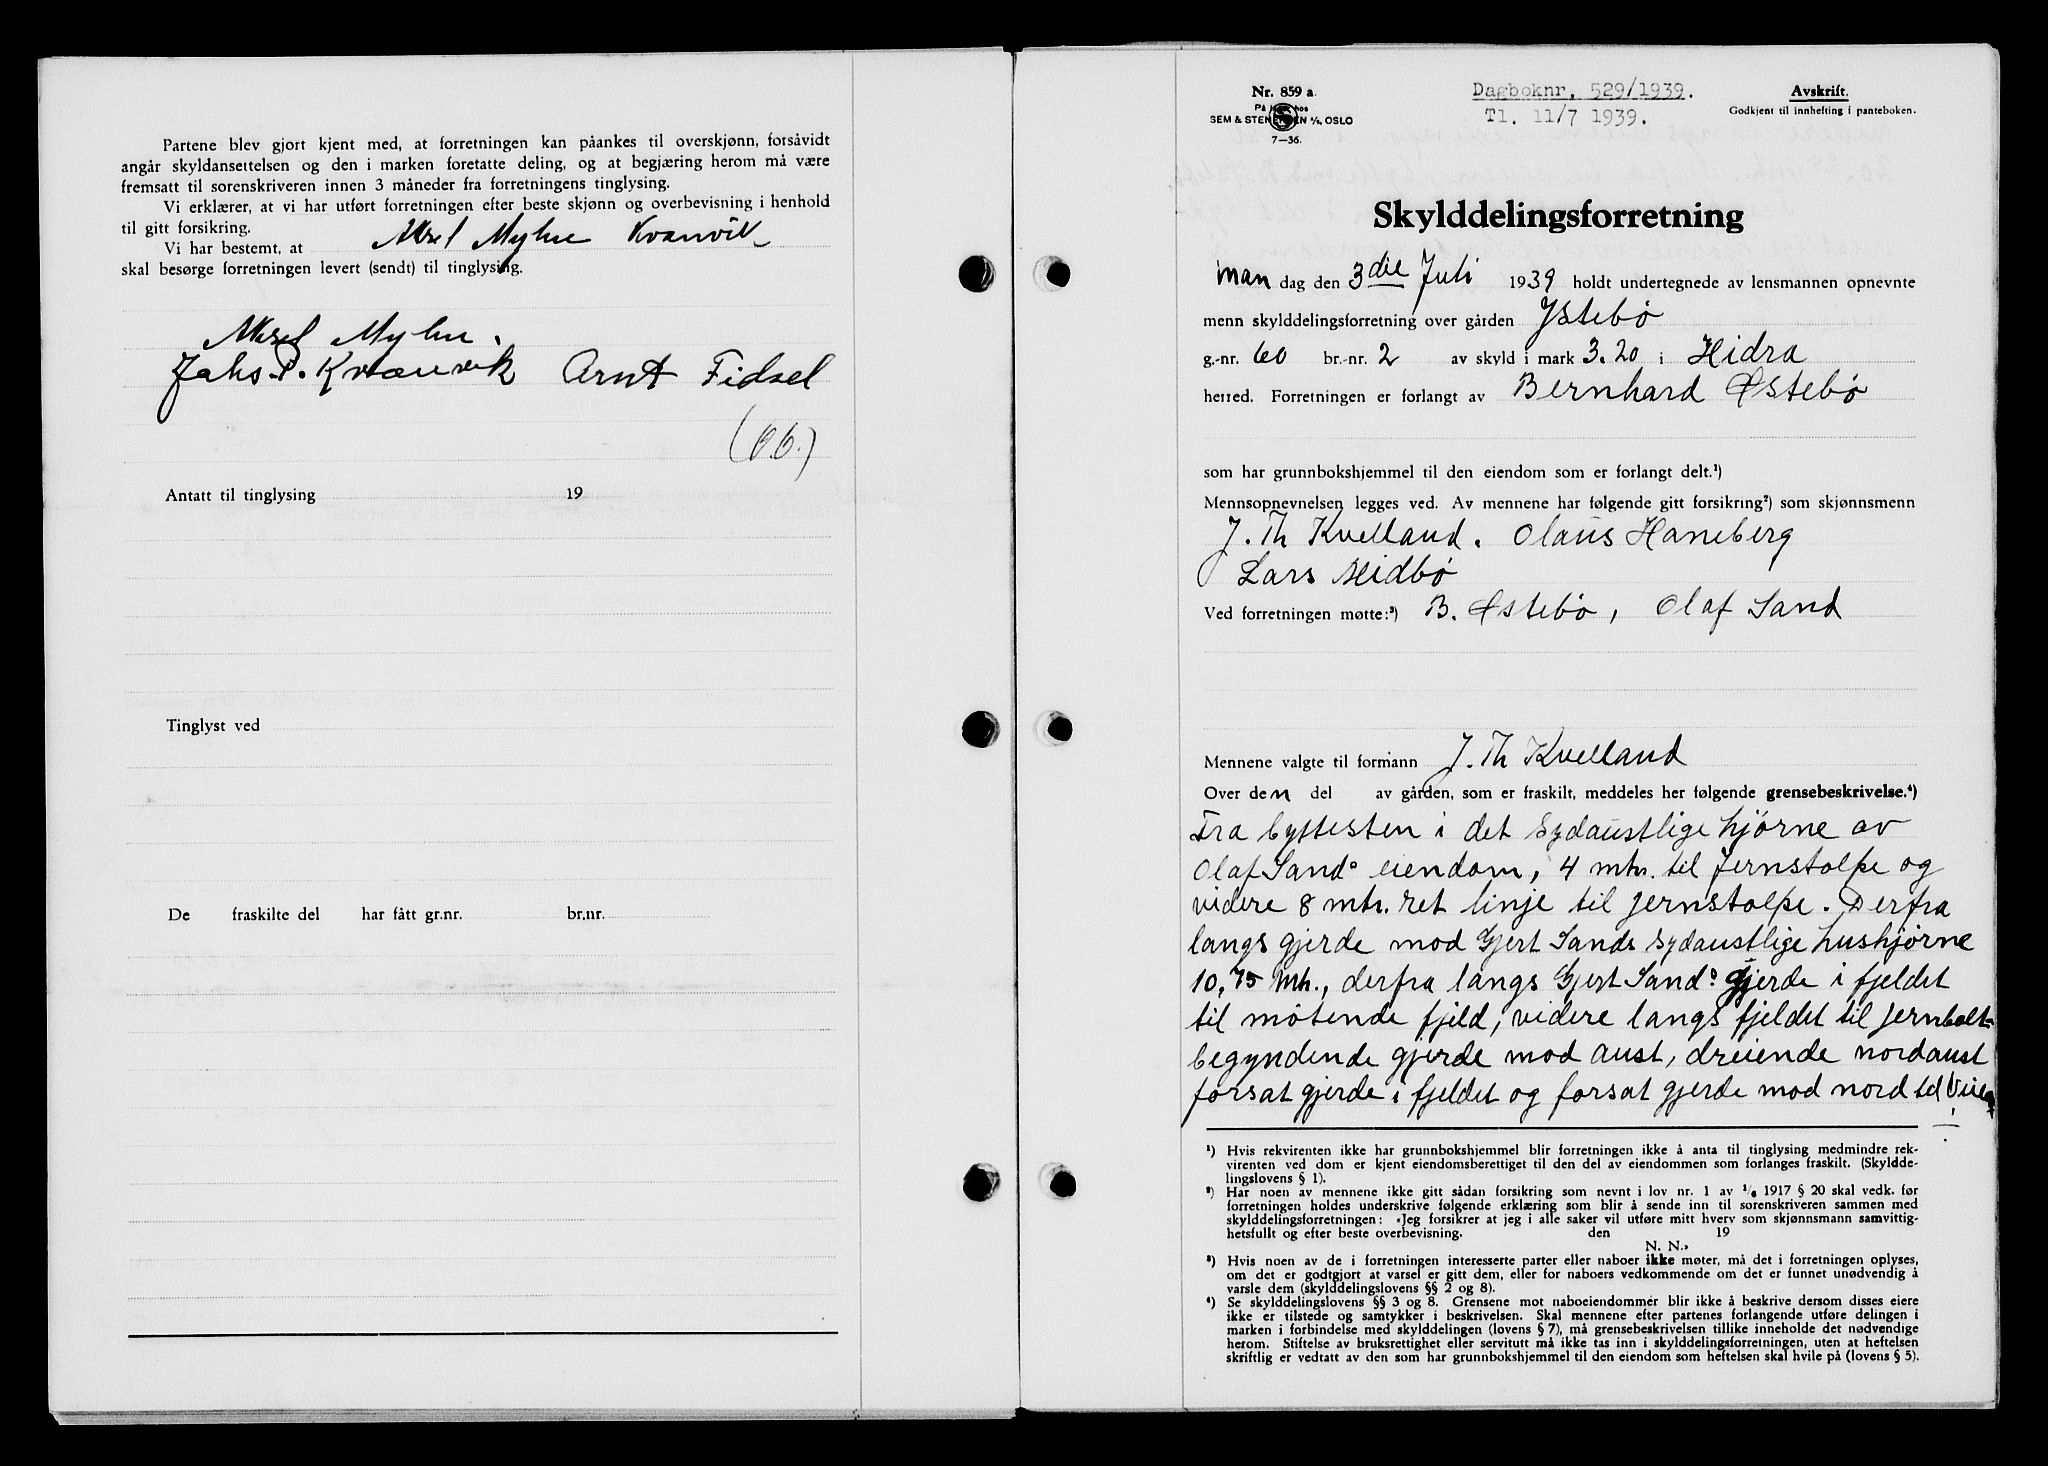 Partene blev gjort kjent med, at forretningen kan påankes til overskjønn, forsåvidt
angår skyldansettelsen og den i marken foretatte deling, og at begjæring herom må være
fremsatt til sorenskriveren innen 3 måneder fra forretningens tinglysing.
Vi erklærer, at vi har utført forretningen efter beste skjønn og overbevisning i henhold
til gitt forsikring.
Vi har bestemt, at Aksel Myhre Kvanvik
skal besørge forretningen levert (sendt) til tinglysing.
Aksel Myhre.
Jahs. P. Kvanvik Arnt Fidsel
Antatt til tinglysing 19
Tinglyst ved
De fraskilte del har fått gr.nr. br.nr.
Nr. 859 a.
På lager hos
SEM & STENERSEN A/S, OSLO
7—36.
Dagboknr. 529/1939.
Tl. 11/7 1939.
Avskrift.
Godkjent til innhefting i panteboken.
Skylddelingsforretning
Man dag den 3die Juli 1939 holdt undertegnede av lensmannen opnevnte
menn skylddelingsforretning over gården Ystebø
g.-nr. 60 br.-nr. 2 av skyld i mark 3.20 i Hidra
herred. Forretningen er forlangt av Bernhard Østebø
som har grunnbokshjemmel til den eiendom som er forlangt delt.¹)
Mennsopnevnelsen legges ved. Av mennene har følgende gitt forsikring²) som skjønnsmenn
J. Th Kvelland. Olaus Haneberg
Lars Midbø
Ved forretningen møtte:³) B. Østebø, Olaf Sand
Mennene valgte til formann J. Th Kvelland
Over den del av gården, som er fraskilt, meddeles her følgende grensebeskrivelse.⁴)
Fra byttesten i det sydaustlige hjørne av
Olaf Sands eiendom, 4 mtr. til Jernstolpe og
videre 8 mtr. ret linje til jernstolpe. Derfra
langs gjerde mod Gjert Sands sydaustlige hushjørne
10,75 mtr., derfra langs Gjert Sands gjerde i fjeldet
til møtende fjeld, videre langs fjeldet til jernbolt-
begyndende gjerde mod aust, dreiende nordaust
forsat gjerde i fjeldet og forsat gjerde mod nord til Veien
¹) Hvis rekvirenten ikke har grunnbokshjemmel blir forretningen ikke å anta til tinglysing medmindre rek-
virenten ved dom er kjent eiendomsberettiget til den del av eiendommen som forlanges fraskilt. (Skyldde-
lingslovens § 1).
²) Har noen av mennene ikke gitt sådan forsikring som nevnt i lov nr. 1 av 1/6 1917 § 20 skal vedk. før
forretningen holdes underskrive følgende erklæring som blir å sende inn til sorenskriveren sammen med
skylddelingsforretningen: «Jeg forsikrer at jeg i alle saker vil utføre mitt hverv som skjønnsmann samvittig-
hetsfullt og efter beste overbevisning. den 19
N. N.»
³) Hvis noen av de i forretningen interesserte parter eller naboer ikke møter, må det i forretningen oplyses,
om det er godtgjort at varsel er gitt dem, eller for naboers vedkommende om det er funnet unødvendig å
varsle dem (skylddelingslovens §§ 2 og 8).
⁴) Se skylddelingslovens §§ 3 og 8. Grensene mot naboeiendommer blir ikke å beskrive dersom disses eiere
ikke er tilstede og samtykker i beskrivelsen. Skal mennene efter partenes forlangende utføre delingen i
marken i forbindelse med skylddelingen (lovens § 7), må grensebeskrivelsen tillike inneholde det nødvendige
herom. Stiftelse av bruksrettighet eller servitutt må ikke tas inn i skylddelingsforretningen, uten at heftelsen
skriftlig er vedtatt av den som har grunnbokshjemmel til den eiendom som heftelsen skal hvile på (lovens § 5).